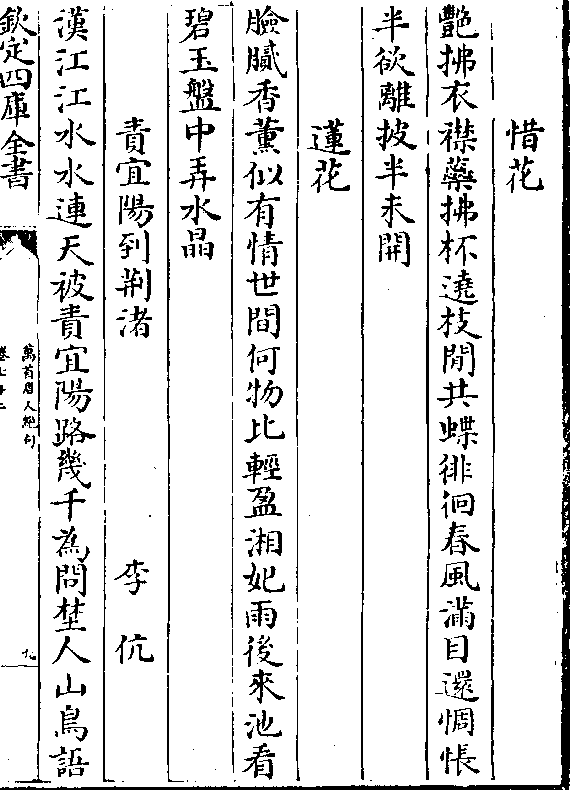 惜花
艷拂衣襟蘂拂杯遶枝閒共蝶徘徊春風滿目還惆悵
半欲離披半未開
蓮花
臉膩香薫似有情世間何物比輕盈湘妃雨後來池看
碧玉盤中弄水晶
責宜陽到荆渚　李伉
漢江江水水連天被責宜陽路幾千為問埜人山鳥語
欽定四庫全書
萬首唐人絶句
九